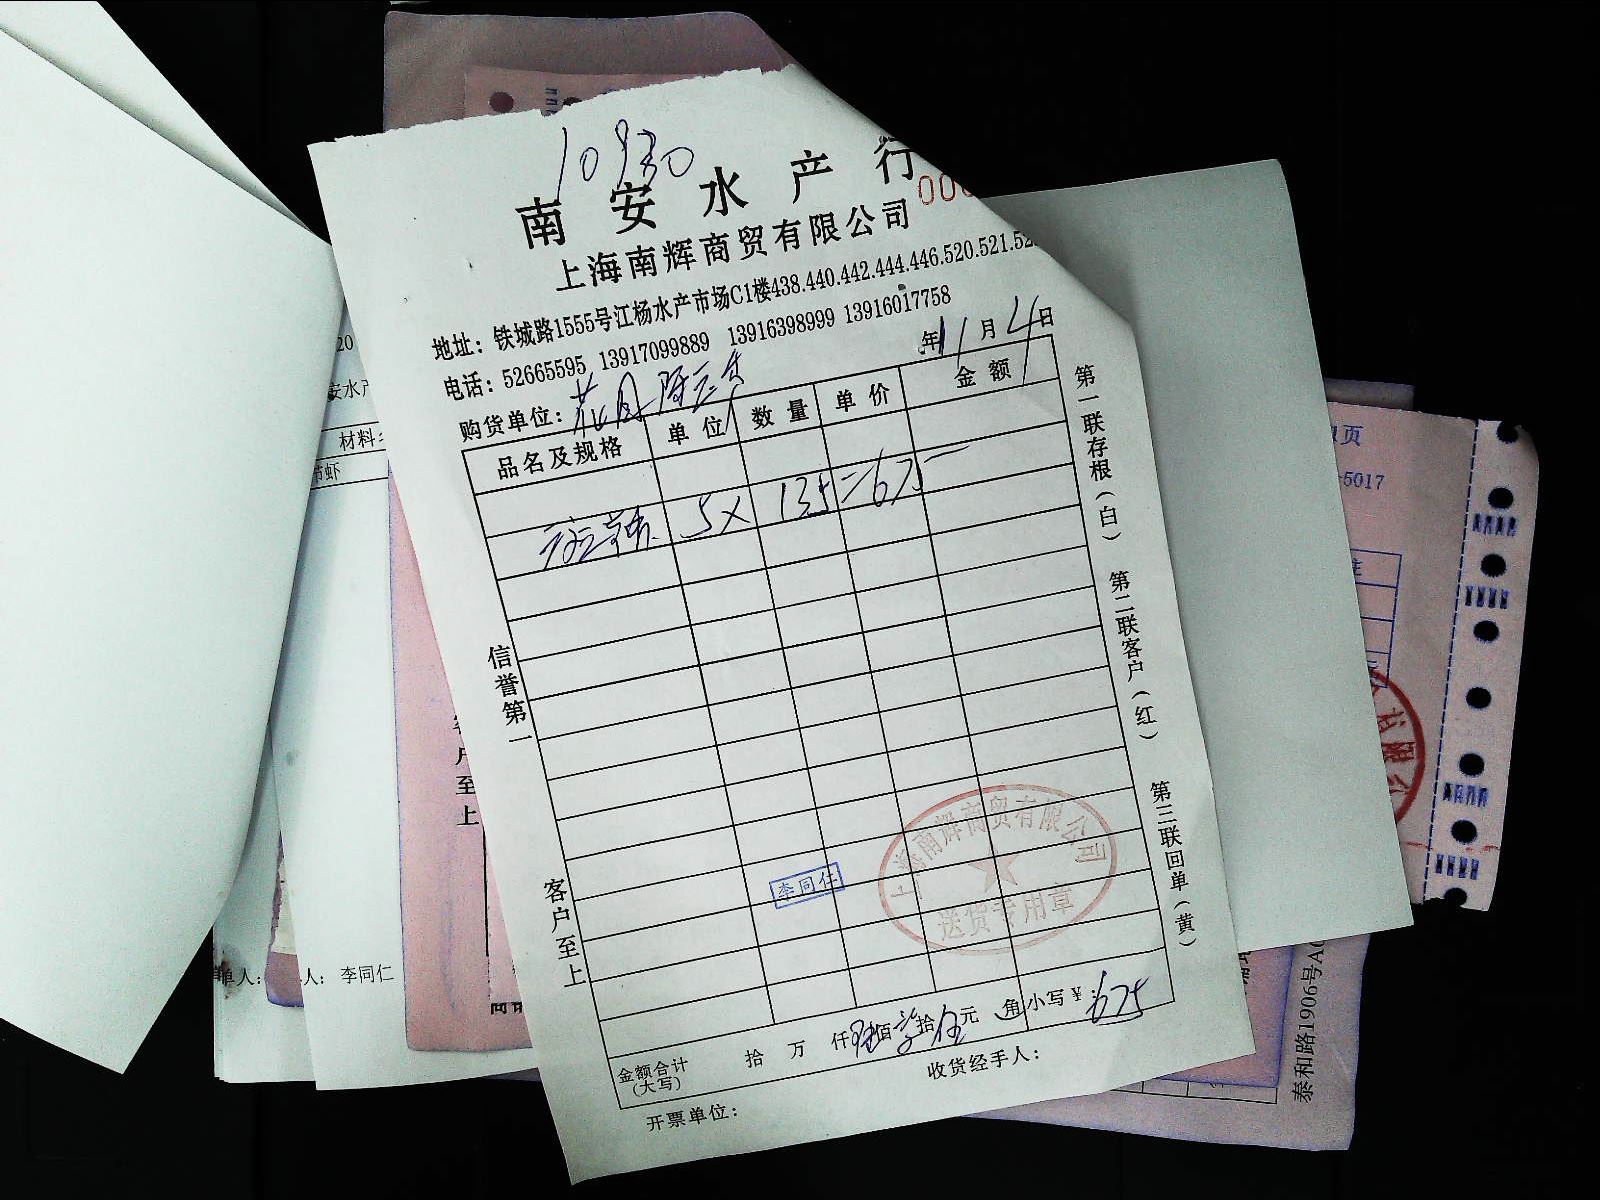 10930
南安水产行
000
上海南辉商贸有限公司
地址：铁城路1555号江杨水产市场C1楼438.440.442.444.446.520.521.52
电话：52665595 13917099889 13916398999 13916017758
年11月4日
购货单位：花月
品名及规格 单位 数量 单价 金额
5X 135=675
信誉第一
客户至上
第一联存根（白） 第二联客户（红） 第三联回单（黄）
李同仁
上海南辉商贸有限公司
送货专用章
金额合计（大写） 拾 万 仟 陆佰柒拾伍元 角 小写￥：675
收货经手人：
开票单位：
20
安水产
材料
节虾
单人：
人： 李同仁
客户至上
页
-5017
有限公
泰和路1906号A